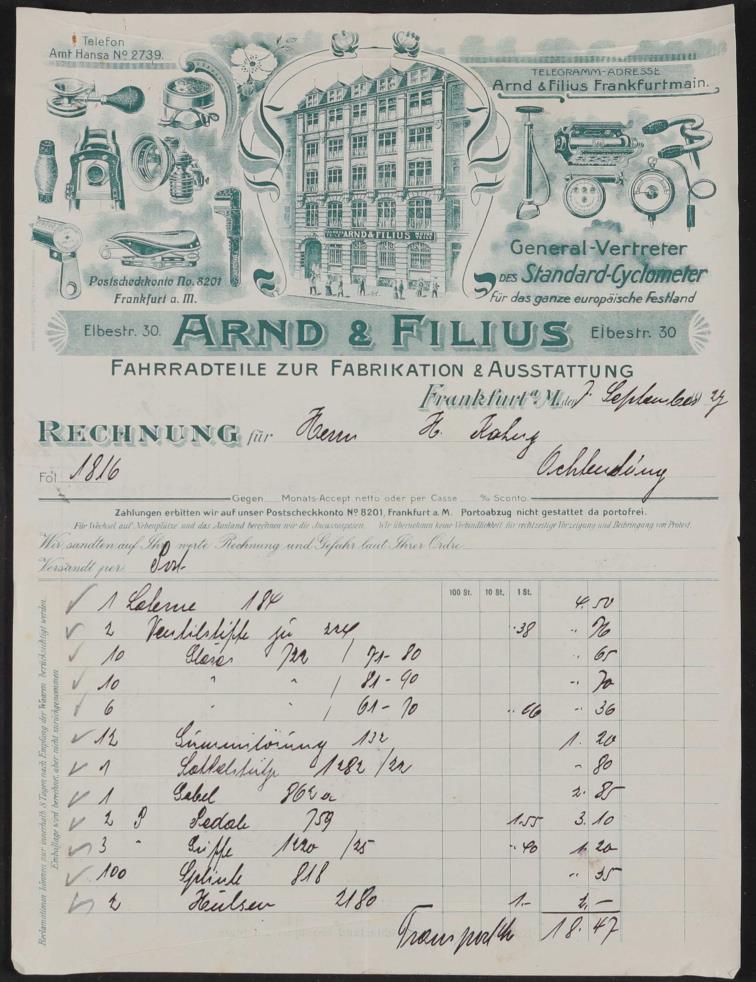 Telefon
Amt Hansa Nº 2739.
TELEGRAMM-ADRESSE
Arnd & Filius Frankfurtmain.
ARND & FILIUS
General-Vertreter
DES Standard-Cyclometer
für das ganze europäische Festland
Postscheckkonto No. 8201
Frankfurt a. M.
Elbestr. 30. ARND & FILIUS Elbestr. 30
FAHRRADTEILE ZUR FABRIKATION & AUSSTATTUNG
Frankfurt a. M. den 7. September 27
RECHNUNG für Herrn H.
Ochtendung
Fol. 1816
Gegen Monats-Accept netto oder per Casse % Sconto
Zahlungen erbitten wir auf unser Postscheckkonto Nº 8201, Frankfurt a. M. Portoabzug nicht gestattet da portofrei.
Für Wechsel auf Nebenplätze und das Ausland berechnen wir die Incassospesen. Wir übernehmen keine Verbindlichkeit für rechtzeitige Vorzeigung und Beibringung von Protest.
Wir sandten auf Ihre werte Rechnung und Gefahr laut Ihrer Ordre
Versandt per Post
100 St. 10 St. 1 St.
1 Laterne 184 4.50
2 Ventilstifte zu 224 "38 " 76
10 Gläser 722 / 71-80 " 65
10 " " / 81-90 " 70
6 " " / 61-70 " 06 " 36
12 Gummilösung 132 1. 20
1 Sattelstütze 1282/22 " 80
1 Gabel 862a 2. 85
2 P Pedale 759 1.55 3. 10
3 " Griffe 1220 /25 " 40 1. 20
100 Splinte 818 " 35
2 Hülsen 2180 1.- 2.-
18. 47
Reclamationen können nur innerhalb 8 Tagen nach Empfang der Waaren berücksichtigt werden.
Emballage wird berechnet, aber nicht zurückgenommen.